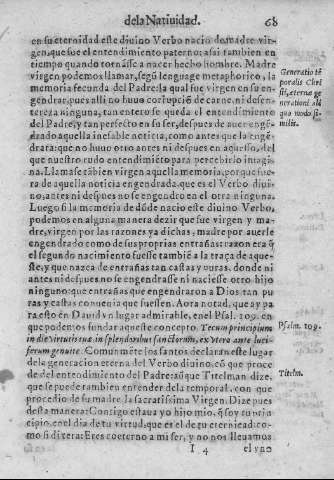 de la Natiuidad. 68
en su eternidad este diuino Verbo nacio de madre vir-
gen, que fue el entendimiento paterno: assi tambien en
tiempo quando tornasse a nacer hecho hombre. Madre
virgen podemos llamar, segũ lenguage metaphorico, la
memoria fecunda del Padre: la qual fue virgen en su en-
gendrar, pues alli no huuo corrupciõ de carne, ni desen-
tereza ninguna, tan entero se queda el entendimiento
del Padre, y tan perfecto en su ser, despues de auer engẽ-
drado aquella inefable noticia, como antes que la engẽ-
drara: que no huuo otro antes ni despues en aquello, del
que nuestro rudo entendimiẽto para percibirlo imagi-
na. Llamase tãbien virgen aquella memoria, porque fue-
ra de aquella noticia engendrada, que es el Verbo diui-
no, antes ni despues no se engendro en ella otra ninguna.
Luego si la memoria de dõde nacio este diuino Verbo,
podemos en alguna manera dezir que fue virgen y ma-
dre, virgen por las razones ya dichas, madre por auerle
engendrado como de sus proprias entrañas: razon era q̃
el segundo nacimiento fuesse tambiẽ a la traça de aques-
te, y que nazca de entrañas tan castas y puras, donde ni
antes ni despues no se engendrasse ni naciesse otro hijo
ninguno: que entrañas que engendraron a Dios tan pu
ras y castas conuenia que fuessen. Aora notad, que ay pa
ra esto en Dauid vn lugar admirable, en el Psal. 109. en
que podemos fundar aqueste concepto. Tecum principium
in die virtutis tuæ in splendoribus sanctorum, ex vtero ante luci-
ferum genui te. Comunmẽte los santos declaran este lugar
de la generacion eterna del Verbo diuino, cõ que proce
de del entendimiento del Padre: aũque Titelman dize,
que se puede tambien entender de la temporal, con que
procedio de su madre la sacratissima Virgen. Dize pues
desta manera: Contigo estaua yo hijo mio, q̃ soy tu prin-
cipio, en el dia de tu virtud, que es el de tu eternidad: co-
mo si dixera: Eres coeterno a mi ser, y no nos lleuamos
I 4 el vno
Generatio tẽ
poralis Chri
sti, æternæ ge
nerationi ali
quo modo si-
milis.
Psalm. 109.
Titelm.